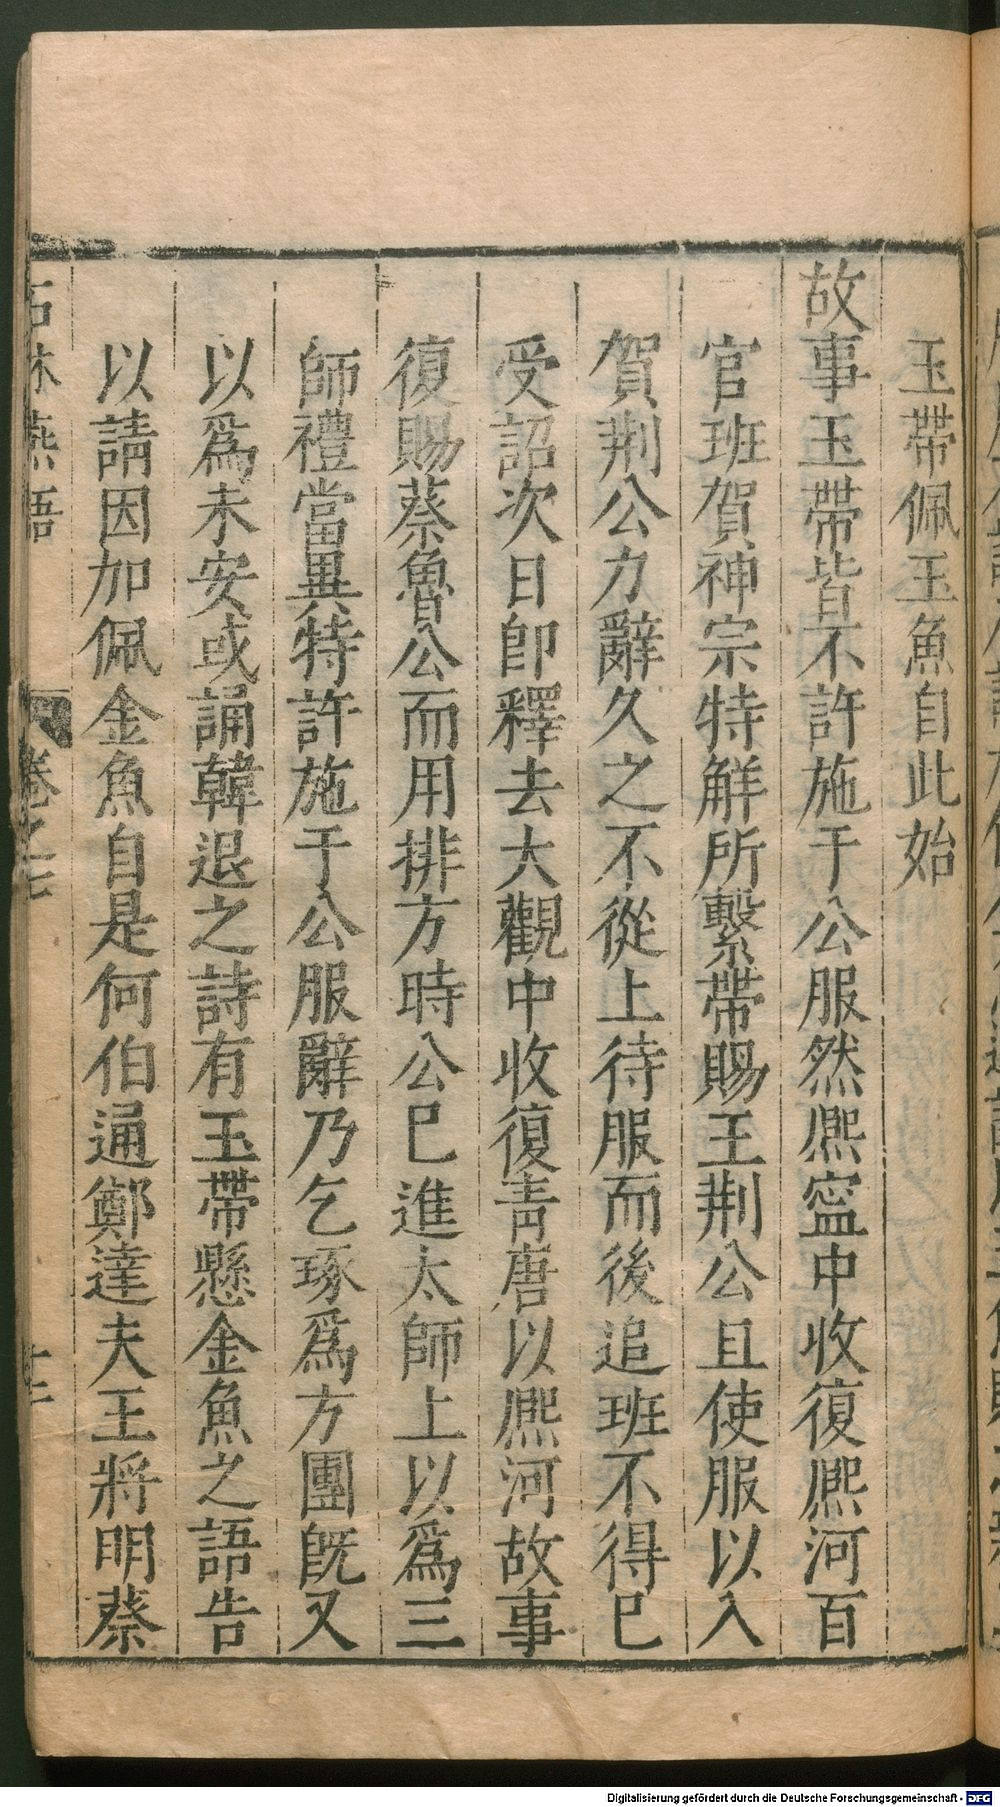 玉帶佩玉魚自此始
故事玉帶皆不許施于公服然熈寍中收復熈河百
官班賀神宗特解所繫帶賜王荆公且使服以入
賀荆公力辭久之不從上待服而後追班不得已
受詔次日卽釋去大觀中收復青唐以熈河故事
復賜蔡魯公而用排方時公已進太師上以爲三
師禮當異特許施于公服辭乃乞琢爲方團旣又
以爲未安或誦韓退之詩有玉帶懸金魚之語告
以請因加佩金魚自是何伯通鄭達夫王將明蔡
石林燕語 卷之七
Digitalisierung gefördert durch die Deutsche Forschungsgemeinschaft - DFG